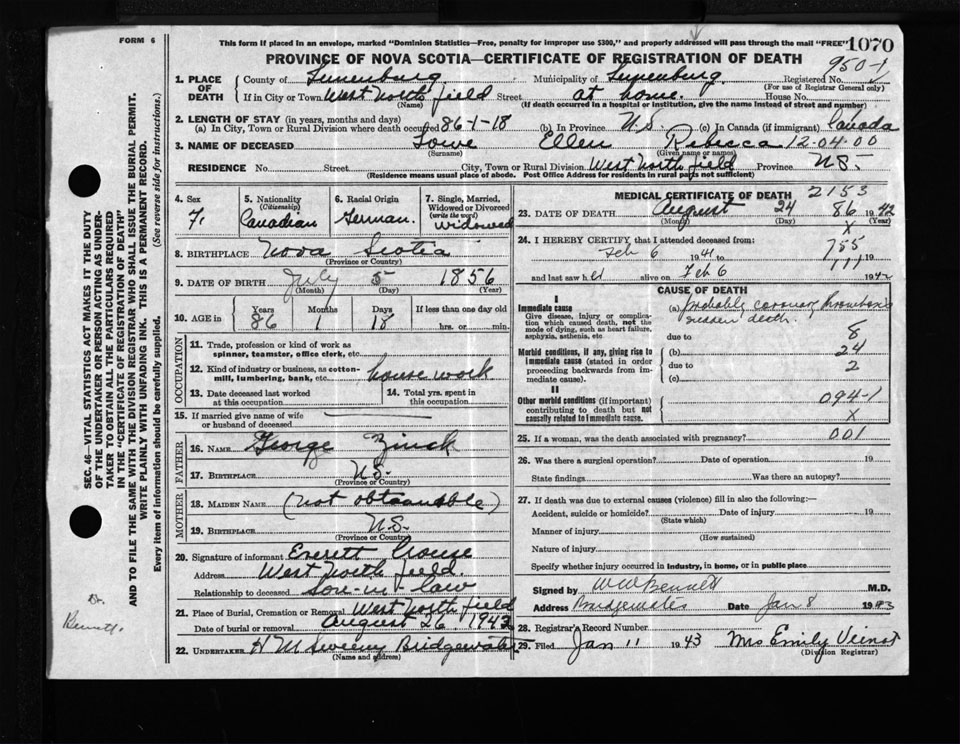 FORM 6
This form if placed in an envelope, marked "Dominion Statistics—Free, penalty for improper use $300," and properly addressed will pass through the mail "FREE"
1070
PROVINCE OF NOVA SCOTIA—CERTIFICATE OF REGISTRATION OF DEATH
950-1
1. PLACE OF DEATH County of Lunenburg Municipality of Lunenburg Registered No.
(For use of Registrar General only)
If in City or Town West North field Street at home. House No.
(Name) (If death occurred in a hospital or institution, give the name instead of street and number)
2. LENGTH OF STAY (in years, months and days)
(a) In City, Town or Rural Division where death occurred 86-1-18 (b) In Province N.S (c) In Canada (if immigrant) Canada
3. NAME OF DECEASED Lowe Ellen Rebecca 12-04-00
(Surname) (Given name or names)
RESIDENCE No. Street City, Town or Rural Division West North field Province N.S.
(Residence means usual place of abode. Post Office Address for residents in rural parts not sufficient)
4. Sex F.
5. Nationality (Citizenship) Canadian
6. Racial Origin German.
7. Single, Married, Widowed or Divorced (write the word) Widowed
8. BIRTHPLACE Nova Scotia
(Province or Country)
9. DATE OF BIRTH July 5 1856
(Month) (Day) (Year)
10. AGE in Years Months Days If less than one day old
86 1 18 hrs. or min.
OCCUPATION
11. Trade, profession or kind of work as spinner, teamster, office clerk, etc.
12. Kind of industry or business, as cotton-mill, lumbering, bank, etc. house work
13. Date deceased last worked at this occupation
14. Total yrs. spent in this occupation
15. If married give name of wife or husband of deceased
FATHER
16. NAME George Zinck
17. BIRTHPLACE N.S.
(Province or Country)
MOTHER
18. MAIDEN NAME (not obtainable)
19. BIRTHPLACE N.S.
(Province or Country)
20. Signature of informant Everett Crouse
Address West North field.
Relationship to deceased son-in-law
21. Place of Burial, Cremation or Removal West North field
Date of burial or removal August 26, 1942
22. UNDERTAKER H M Sweeny Bridgewater
(Name and address)
MEDICAL CERTIFICATE OF DEATH 2153
23. DATE OF DEATH August 24 86 1942
(Month) (Day) (Year)
X
24. I HEREBY CERTIFY, that I attended deceased from:
Feb 6 1941 to 755
and last saw h alive on Feb 6 111 1942
CAUSE OF DEATH
I
Immediate cause
Give disease, injury or complication which caused death, not the mode of dying, such as heart failure, asphyxia, asthenia, etc
(a) probably coronary thrombosis
sudden death.
due to 8
Morbid conditions, if any, giving rise to immediate cause (stated in order proceeding backwards from immediate cause).
(b) 24
due to 2
(c)
II
Other morbid conditions (if important) contributing to death but not causally related to immediate cause.
094-1
X
25. If a woman, was the death associated with pregnancy? 001
26. Was there a surgical operation? Date of operation 19
State findings Was there an autopsy?
27. If death was due to external causes (violence) fill in also the following:—
Accident, suicide or homicide? Date of injury 19
(State which)
Manner of injury
(How sustained)
Nature of injury
Specify whether injury occurred in industry, in home, or in public place
Signed by W W Bennett M.D.
Address Bridgewater Date Jan 8 1943
28. Registrar's Record Number
29. Filed Jan 11 1943 Mrs Emily
(Division Registrar)
SEC. 46—VITAL STATISTICS ACT MAKES IT THE DUTY
OF THE UNDERTAKER OR PERSON ACTING AS UNDER-
TAKER TO OBTAIN ALL THE PARTICULARS REQUIRED
IN THE "CERTIFICATE OF REGISTRATION OF DEATH"
AND TO FILE THE SAME WITH THE DIVISION REGISTRAR WHO SHALL ISSUE THE BURIAL PERMIT.
WRITE PLAINLY WITH UNFADING INK. THIS IS A PERMANENT RECORD.
Every item of information should be carefully supplied. (See reverse side for instructions.)
Dr.
Bennett.